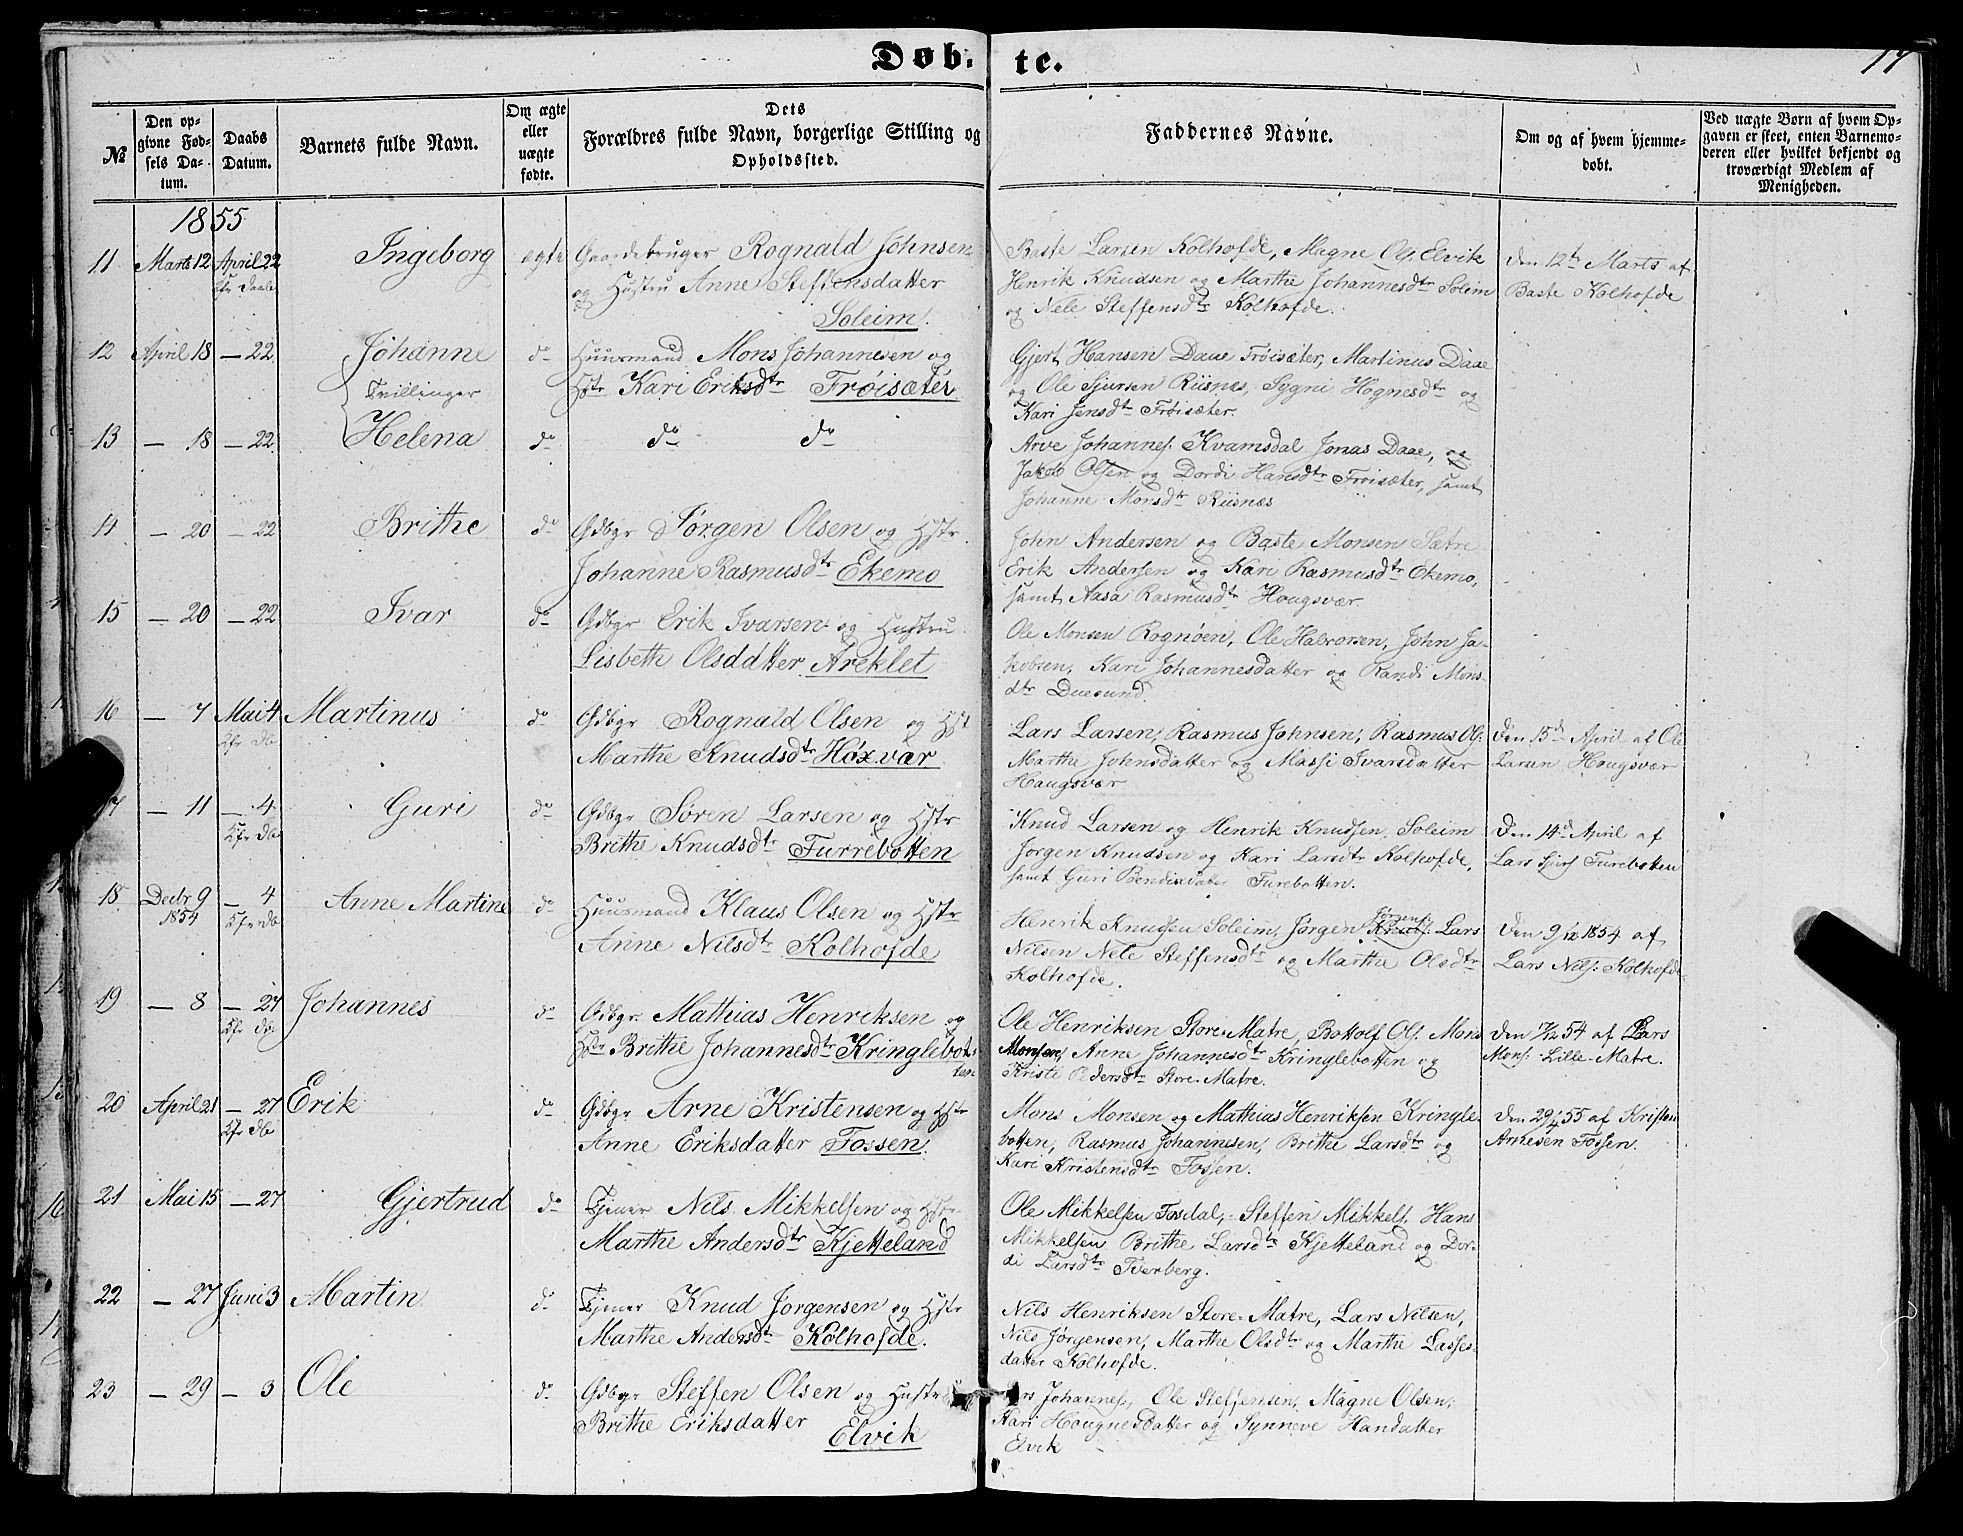 Døb-te.
17
№
Den opgivne Fødsels Datum.
Daabs Datum.
Barnets fulde Navn.
Om ægte eller uægte fødte.
Dets Forældres fulde Navn, borgerlige Stilling og Opholdssted.
Faddernes Navne.
Om og af hvem hjemmedøbt.
Ved uægte Børn af hvem Opgaven er skeet, enten Barnemoderen eller hvilket bekjendt og troværdigt Medlem af Menigheden.
1855
11 Marts 12 April 22 Ingeborg ægte Gaardebruger Rognald Johnsen
og Hustru Anne Steffensdatter
Soleim.
Baste Larsen Kolhofde, Magne Ols. Elvik
Henrik Knudsen og Marthe Johannesdtr Soleim
og Nele Steffensdtr Kolhofde.
Den 12te Marts af
Baste Kolhofde
12 April 18 — 22 Johanne do Huusmand Mons Johannesen og
Tvillinger
Hstr Kari Eriksdtr Frøisæter
Gjert Hansen Daae Frøisæter, Martinus Daae
og Ole Sjursen Riisnæs, Sygni Hognesdtr og
Kari Jensdtr Frøisæter.
13 — 18 — 22 Helena do do do
Arve Johannes. Kvamsdal Jonas Daae, og
Jakob Olsen og Dordi Hansdtr Frøisæter, samt
Johanne Monsdtr Riisnæs
14 — 20 — 22 Brithe do Gdbgr Jørgen Olsen og Hstr
Johanne Rasmusdtr Ekemo
John Andersen og Baste Monsen Sætre
Erik Andersen og Kari Rasmusdtr Ekemo,
samt Aasa Rasmusdtr Hougsvær.
15 — 20 — 22 Ivar do Gdbgr Erik Ivarsen og Hustru
Lisbeth Olsdatter Areklet
Ole Monsen Rognøen, Ole Halvorsen, John Ja-
kobsen, Kari Johannesdatter og Randi Mons-
dtr Duesund
16 — 7 Mai 4 Martinus do Gdbgr Rognald Olsen og Hst
Marthe Knudsdtr Høxvær
Lars Larsen, Rasmus Johnsen, Rasmus Ols.
Marthe Johnsdatter og Massi Ivarsdatter
Hougsvær
Den 15d April af Ole
Larsen Hougsvær
17 — 11 — 4 Guri do Gdbgr Søren Larsen og Hstr
Brithe Knudsdtr Furrebotten
Knud Larsen og Henrik Knudsen, Soleim
Jørgen Knudsen og Kari Larsdtr Kolhofde,
samt Guri Bendixdater Furebotten.
Den 14d April af
Lars Sjurs Furebotten
18 Decbr 9 — 4 Anne Martine do Huusmand Klaus Olsen og Hstr
1854
Anne Nilsdtr Kolhofde
Henrik Knudsen Soleim, Jørgen Jørgens: Lars
Nilsen Nele Steffensdtr og Marthe Olsdtr
Kolhofde.
Den 9/12 1854 af
Lars Nils: Kolhofde
19 — 8 — 27 Johannes do Gdbgr. Mathias Henriksen og
Hstr Brithe Johannesdtr Kringlebot-
ten
Ole Henriksen Store-Matre, Bottolf Ols. Mons
Monsen, Anne Johannesdtr Kringlebotten og
Kristi Pedersdtr Store-Matre.
54 af Lars
Mons: Lille-Matre.
20 April 21 — 27 Erik do Gdbgr Arne Kristensen og Hstr
Anne Eriksdatter Fossen.
Mons Monsen og Mathias Henriksen Kringle-
botten, Rasmus Johannesen, Brithe Larsdtr og
Kari Kristensdtr Fossen.
Den 29/4 55 af Kristen
Arnesen Fossen.
21 Mai 15 — 27 Gjertrud do Tjener Nils Mikkelsen og Hstr
Marthe Andersdtr Kjetteland
Ole Mikkelsen Fosdal, Steffen Mikkels. Hans
Mikkelsen Brithe Larsdtr Kjetteland og Dor-
di Larsdtr Tverberg.
22 — 27 Juni 3 Martin do Tjener Knud Jørgensen og Hstr
Marthe Andersdtr Kolhofde.
Nils Henriksen Store-Matre, Lars Nilsen,
Nils Jørgensen, Marthe Olsdtr og Marthe Lasses-
datter Kolhofde.
23 — 29 — 3 Ole do Gdbgr Steffen Olsen og Hustr
Brithe Eriksdatter
Elvik
Johannes, Ole Steffensen, Magne Olsen,
Kari Hougnesdatter og Synneve Handatter
Elvik